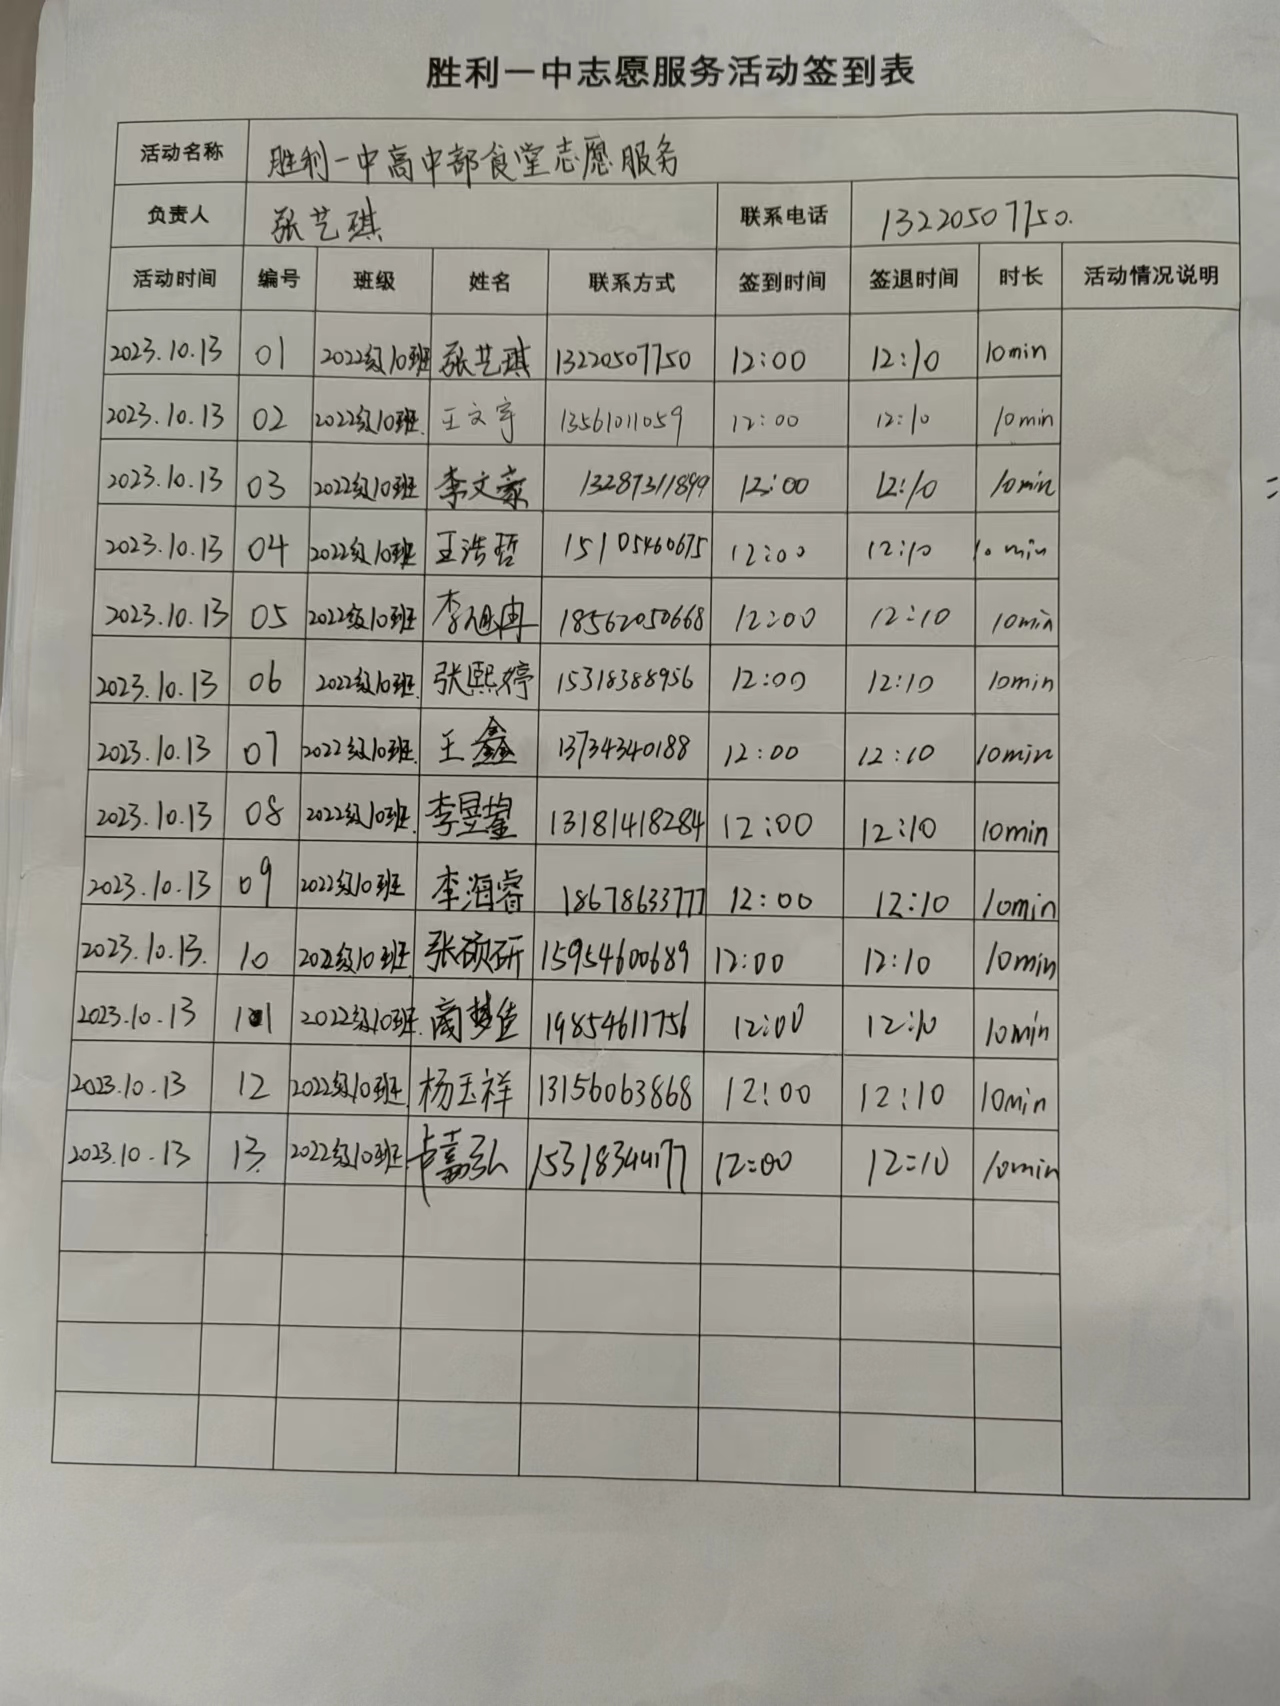 胜利一中志愿服务活动签到表
活动名称 胜利一中高中部食堂志愿服务
负责人 张艺琪 联系电话 13220507750.
活动时间 编号 班级 姓名 联系方式 签到时间 签退时间 时长 活动情况说明
2023.10.13 01 2022级10班 张艺琪 13220507750 12:00 12:10 10min
2023.10.13 02 2022级10班. 王文宇 13561011059 12:00 12:10 10min
2023.10.13 03 2022级10班 李文豪 13287311899 12:00 12:10 10min
2023.10.13 04 2022级10班 王浩哲 15105460675 12:00 12:10 10min
2023.10.13 05 2022级10班 李旭冉 18562050668 12:00 12:10 10min
2023.10.13 06 2022级10班. 张熙婷 15318388956 12:00 12:10 10min
2023.10.13 07 2022级10班. 王鑫 13734340188 12:00 12:10 10min
2023.10.13 08 2022级10班. 李昱鋆 13181418284 12:00 12:10 10min
2023.10.13 09 2022级10班 李海睿 18678633777 12:00 12:10 10min
2023.10.13. 10 2022级10班. 张硕研 15954600689 12:00 12:10 10min
2023.10.13 11 2022级10班. 商梦佳 19854611756 12:00 12:10 10min
2023.10.13 12 2022级10班. 杨玉祥 13156063868 12:00 12:10 10min
2023.10.13 13. 2022级10班 卢嘉弘 15318344177 12:00 12:10 10min